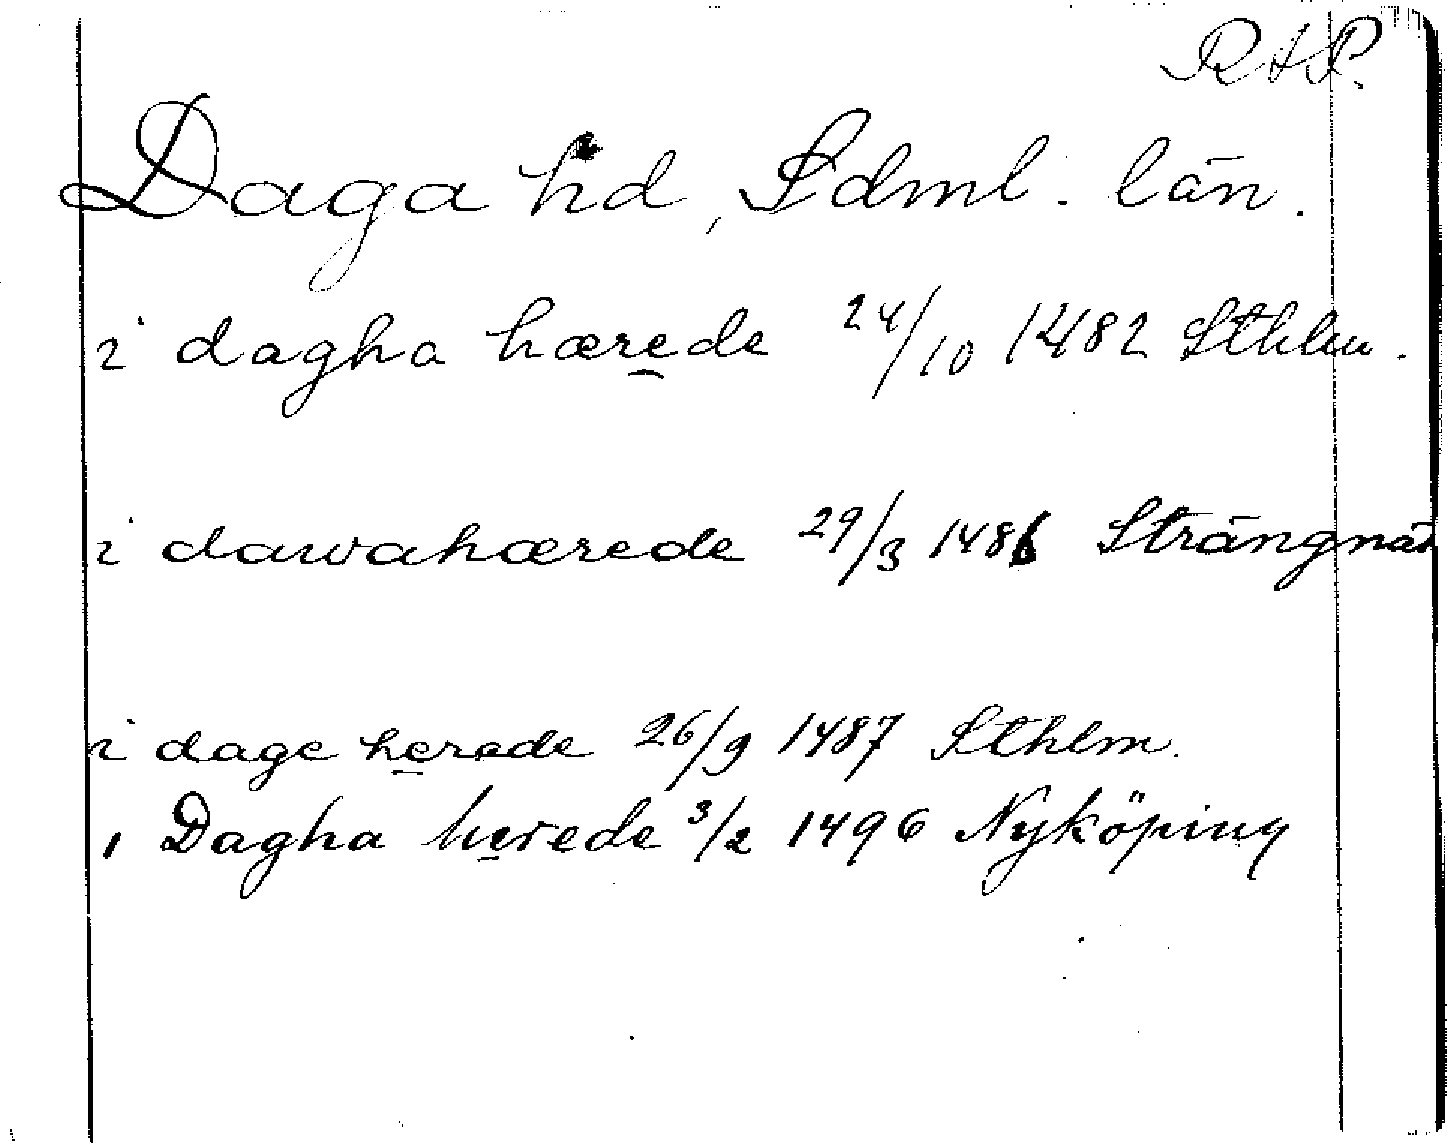 RAP.
Daga hd, Sdml. län.
i dagha hærede 24/10 1482 Sthlm.
i dawahærede 29/3 1486 Strängnäs
i dage herade 26/9 1487 Sthlm.
i Dagha herede 3/2 1496 Nyköping